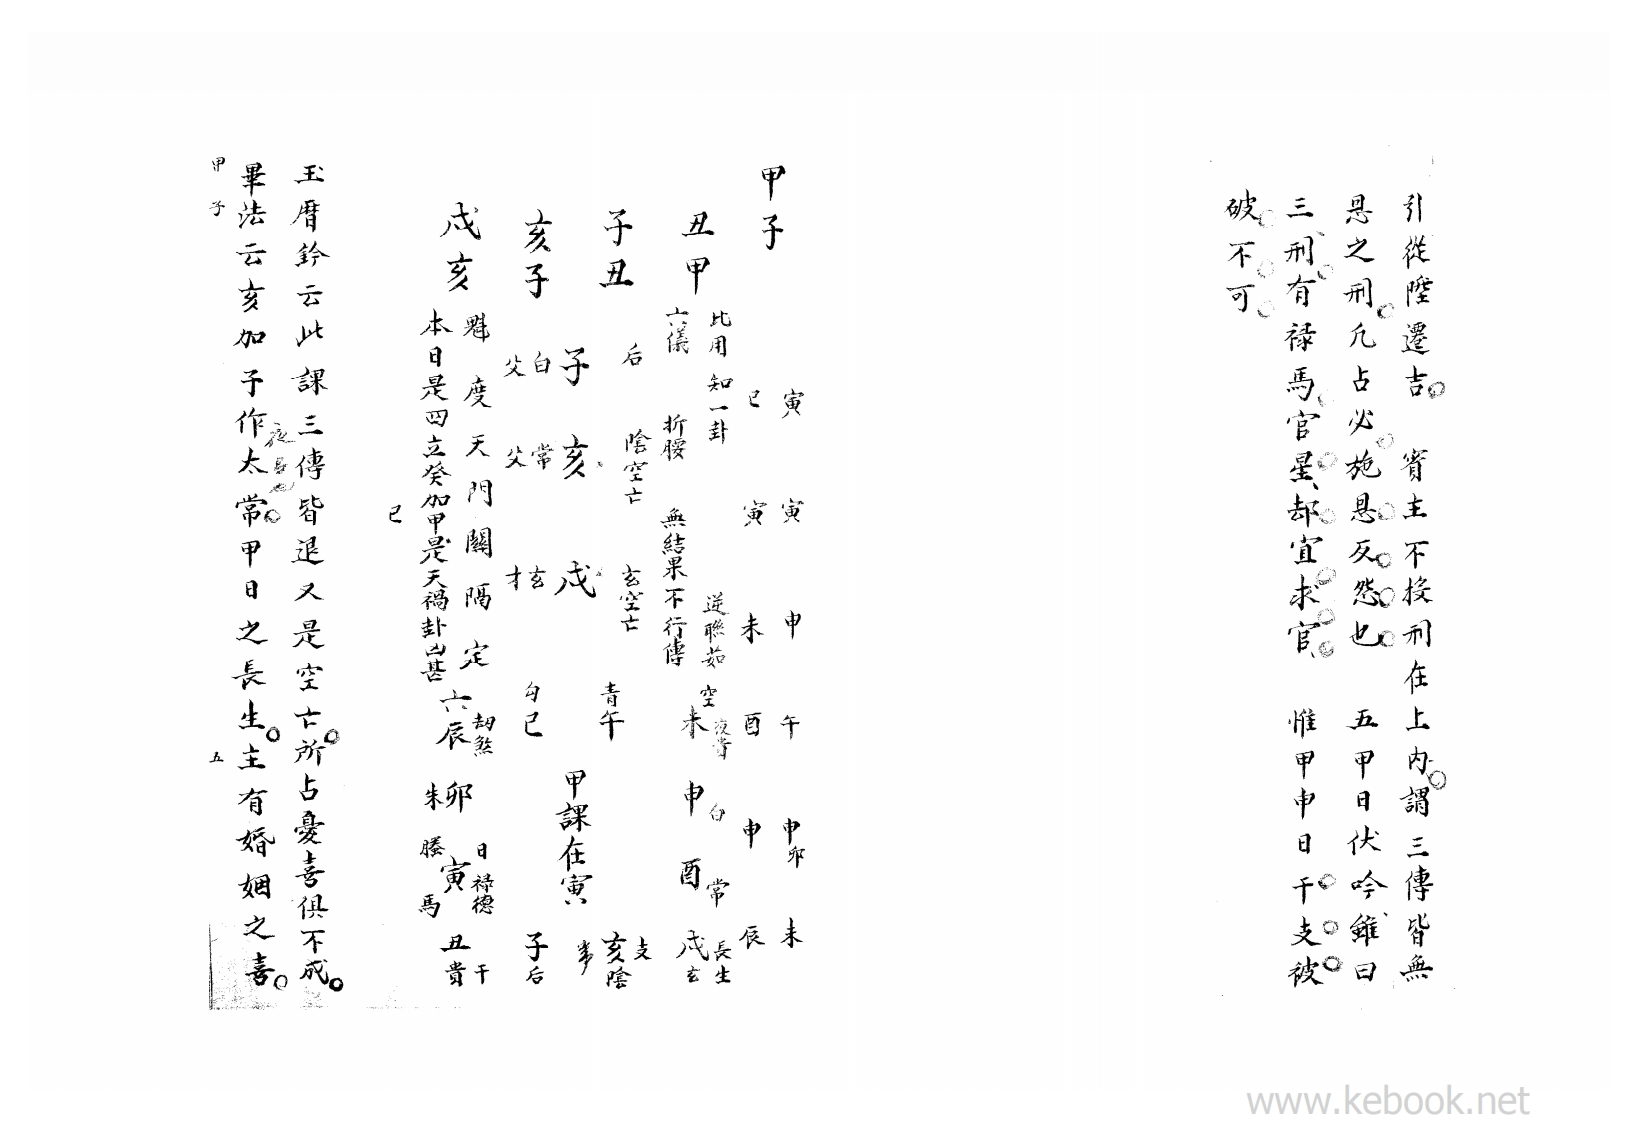 引從陞遷吉 賓主不投刑在上内謂三傳皆無
恩之刑凢占必施恩反怨也 五甲日伏吟雖曰
三刑有禄馬官星却宜求官 惟甲申日干支被
破不可
甲子
寅 寅 申 午 申卯 未
巳 寅 未 酉 申 辰
丑甲
比用知一卦 逆聯茹
六儀 折腰 無結果不行傳
空未 申白 酉常 戌玄 長生
子丑
后 陰空亡 玄空亡
青午
亥陰 支
子 亥 戌
甲課在寅
亥子
白父 常父 玄才
勾巳
子后
戌亥
魁度天門關隔定
本日是四立癸加甲是天禍卦凶甚
六辰 劫煞
朱卯
螣寅馬 日禄德
丑貴 干
巳
玉曆鈐云此課三傳皆退又是空亡所占憂喜俱不成
畢法云亥加子作太常甲日之長生主有婚姻之喜
甲子 五
www.kebook.net